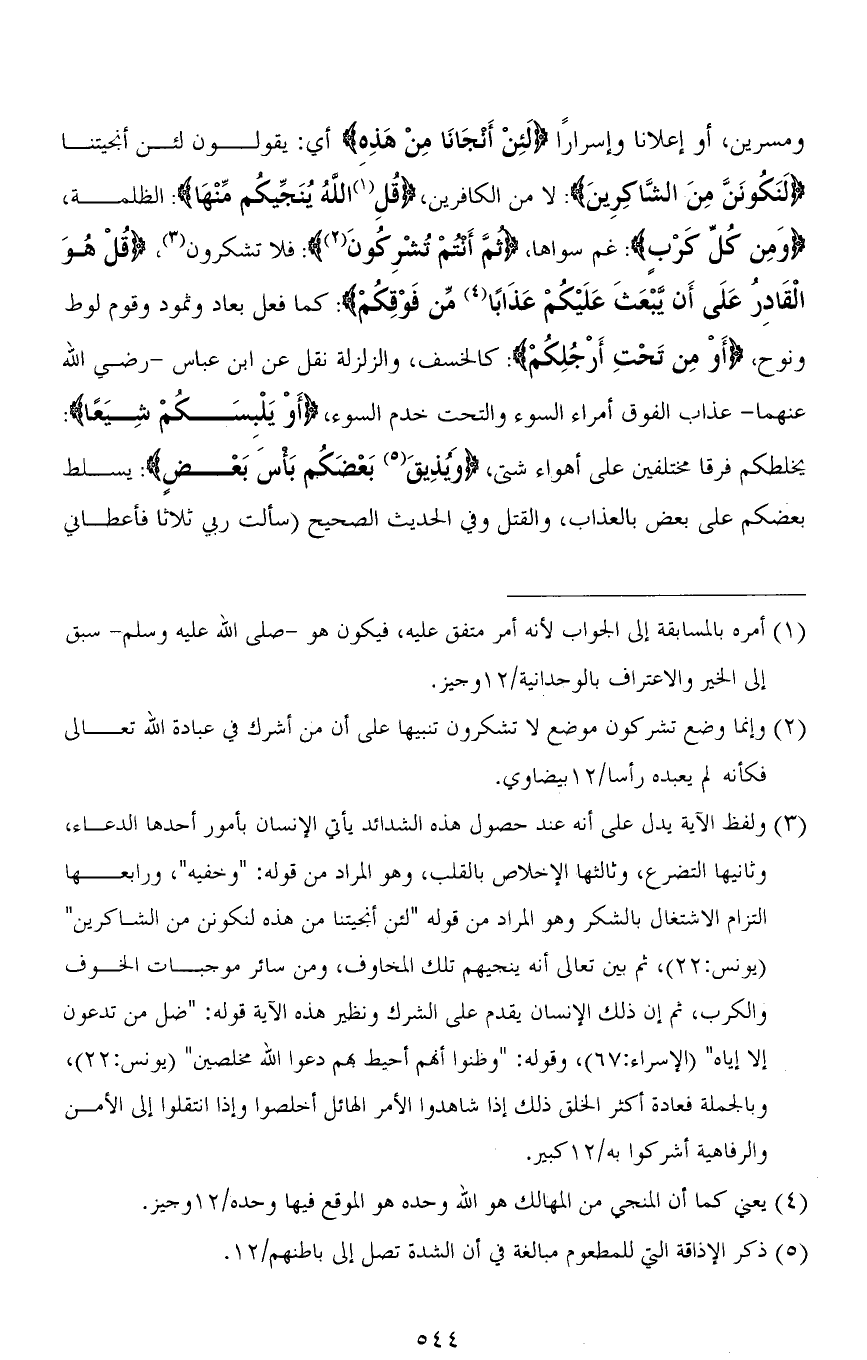 ومسرين، أو إعلانا وإسرارًا ﴿لَئِنْ أَنْجَانَا مِنْ هَذِهِ﴾ أي: يقولـــون لئـــن أنجيتنـــا
﴿لَنَكُونَنَّ مِنَ الشَّاكِرِينَ﴾: لا من الكافرين، ﴿قُلِ(١)اللَّهُ يُنَجِّيكُم مِّنْهَا﴾: الظلمـــة،
﴿وَمِن كُلِّ كَرْبٍ﴾: غم سواها، ﴿ثُمَّ أَنْتُمْ تُشْرِكُونَ(٢)﴾: فلا تشكرون(٣)، ﴿قُلْ هُـوَ
الْقَادِرُ عَلَى أَن يَّبْعَثَ عَلَيْكُمْ عَذَابًا(٤) مِّن فَوْقِكُمْ﴾: كما فعل بعاد وثمود وقوم لوط
ونوح، ﴿أَوْ مِن تَحْتِ أَرْجُلِكُمْ﴾: كالخسف، والزلزلة نقل عن ابن عباس -رضـي الله
عنهما- عذاب الفوق أمراء السوء والتحت خدم السوء، ﴿أَوْ يَلْبِسَـــكُمْ شِـــيَعًا﴾:
يخلطكم فرقا مختلفين على أهواء شتى، ﴿وَيُذِيقَ(٥) بَعْضَكُم بَأْسَ بَعْــــضٍ﴾: يســلط
بعضكم على بعض بالعذاب، والقتل وفي الحديث الصحيح (سألت ربي ثلاثا فأعطـاني
(١) أمره بالمسابقة إلى الجواب لأنه أمر متفق عليه، فيكون هو -صلى الله عليه وسلم- سبق
إلى الخير والاعتراف بالوحدانية/١٢وجيز.
(٢) وإنما وضع تشركون موضع لا تشكرون تنبيها على أن من أشرك في عبادة الله تعـــالى
فكأنه لم يعبده رأسا/١٢بيضاوي.
(٣) ولفظ الآية يدل على أنه عند حصول هذه الشدائد يأتي الإنسان بأمور أحدها الدعـاء،
وثانيها التضرع، وثالثها الإخلاص بالقلب، وهو المراد من قوله: "وخفيه"، ورابعـــها
التزام الاشتغال بالشكر وهو المراد من قوله "لئن أنجيتنا من هذه لنكونن من الشـاكرين"
(يونس:٢٢)، ثم بين تعالى أنه ينجيهم تلك المخاوف، ومن سائر موجبـــات الخـــوف
والكرب، ثم إن ذلك الإنسان يقدم على الشرك ونظير هذه الآية قوله: "ضل من تدعون
إلا إياه" (الإسراء:٦٧)، وقوله: "وظنوا أنهم أحيط بهم دعوا الله مخلصين" (يونس:٢٢)،
وبالجملة فعادة أكثر الخلق ذلك إذا شاهدوا الأمر الهائل أخلصوا وإذا انتقلوا إلى الأمــن
والرفاهية أشركوا به/١٢كبير.
(٤) يعني كما أن المنجي من المهالك هو الله وحده هو الموقع فيها وحده/١٢وجيز.
(٥) ذكر الإذاقة التي للمطعوم مبالغة في أن الشدة تصل إلى باطنهم/١٢.
٥٤٤